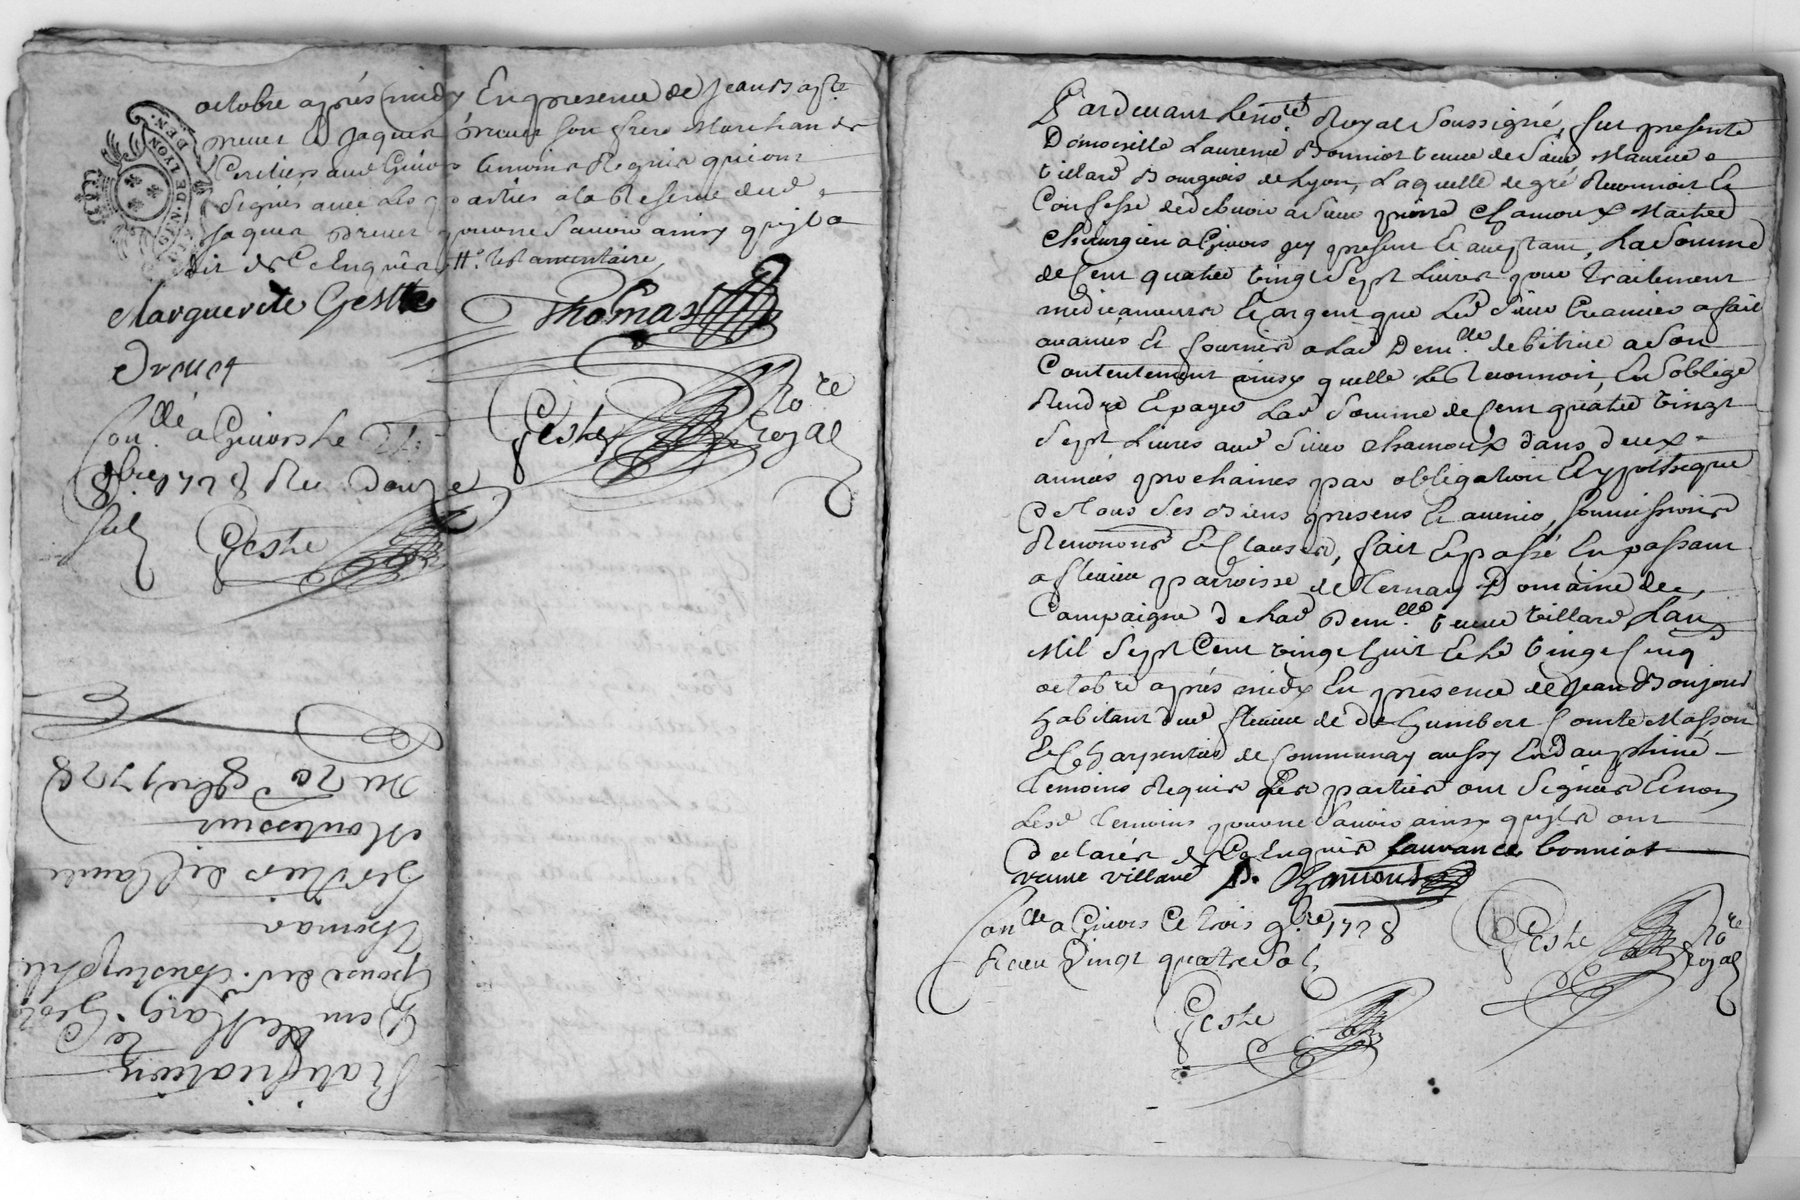 octobre après midy En presence de Jean Bapte
Drevet et Jaques Drevet son frere Marchands
Cartiers aud Givors temoins Requis qui ont
Signés avec les parties a la Reserve dud
Jaques Drevet pour ne Savoir ainsy quil a
dit de Ce Enquis, testamentaire
GEN. DE LYON. EN.
Marguerite Geste
Thomas
Drevet
Geste No.re Royal
Con.llé a Givors le
8bre 1728 Reu Douze
Sols
Geste
Du 20 8bre 1728
Montessuit
heritiers de Claude
Thomas
Epouse de Sr. Christophle
Dem.lle Marg.te Geste
Ratification
Pardevant le no.re Royal Soussigné, fut presente
Demoiselle Laurence Bonniot veuve de Sieur Maurice
Villard Bourgeois de Lyon, Laquelle de gré Reconnoit Et
Confesse de debvoir a Sieur pierre Chamoux Maitre
Chirurgien a Givors icy present Et acceptant, La Somme
de Cent quatre vingt Sept Livres pour traitement
medicaments Et argent que Led Sieur Creancier a fait
avancés Et fournier a Lad Dem.lle debitrice a Son
Contentement ainsy quelle Le Reconnoit, Et S'oblige
Rendre Et payer Lad Somme de Cent quatre vingt
Sept Livres aud Sieur Chamoux dans deux
années prochaines par obligation Et ypotheque
De tous Ses Biens presens Et avenir, soumissions
Renonons Et Clauses, fait Et passé En passant
a flevieu parroisse de Ternay Domaine de
Campaigne De Lad Dem.lle veuve Villard, L'an
Mil Sept Cent vingt huit Et Le vingt Cinq
octobre après midy En presence de Jean Bonjour
habitant dud flevieu et de humbert Comte Masson
Et Charpentier de Communay aussy En Dauphiné
temoins Requis Les parties ont Signées Et non
Lesd temoins pour ne Savoir ainsy quils ont
Declarés de Ce Enquis Laurance bonniot
veuve villard P. Chamoux
Con.llé a Givors Ce trois 9.bre 1728
Receu Vingt quatre Sols
Geste No.re Royal
Geste